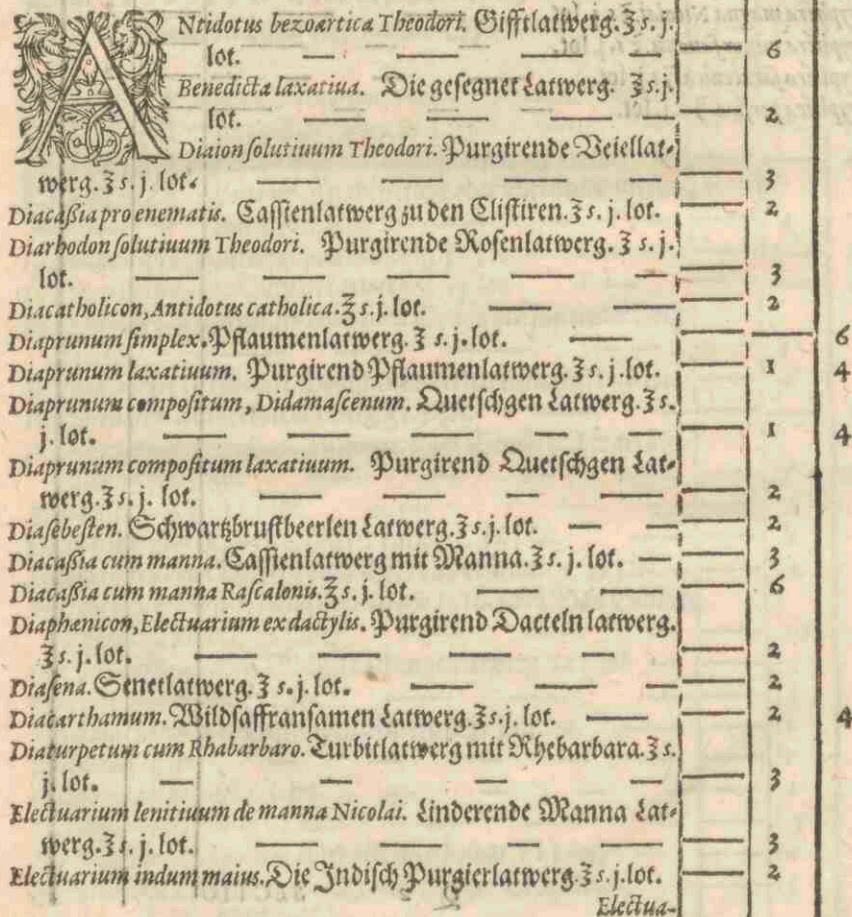 ANtidotus bezoartica Theodori. Gifftlatwerg. ℥ s. j.
lot. — — — — — — 6
Benedicta laxatiua. Die gesegnet Latwerg. ℥ s. j.
lot. — — — — — — 2
Diaion solutiuum Theodori. Purgirende Veiellat-
werg. ℥ s. j. lot. — — — — — — 3
Diacaßia pro enematis. Cassienlatwerg zu den Clistiren. ℥ s. j. lot. — 2
Diarhodon solutiuum Theodori. Purgirende Rosenlatwerg. ℥ s. j.
lot. — — — — — — 3
Diacatholicon, Antidotus catholica. ℥ s. j. lot. — — — 2
Diaprunum simplex. Pflaumenlatwerg. ℥ s. j. lot. — — — 6
Diaprunum laxatiuum. Purgirend Pflaumenlatwerg. ℥ s. j. lot. — 1 4
Diaprunum compositum, Didamascenum. Quetschgen Latwerg. ℥ s.
j. lot. — — — — — — 1 4
Diaprunum compositum laxatiuum. Purgirend Quetschgen Lat-
werg. ℥ s. j. lot. — — — — — 2
Diasebesten. Schwartzbrustbeerlen Latwerg. ℥ s. j. lot. — — — 2
Diacaßia cum manna. Cassienlatwerg mit Manna. ℥ s. j. lot. — — 3
Diacaßia cum manna Rascalonis. ℥ s. j. lot. — — — 6
Diaphænicon, Electuarium ex dactylis. Purgirend Dacteln latwerg.
℥ s. j. lot. — — — — — 2
Diasena. Senetlatwerg. ℥ s. j. lot. — — — — 2
Diacarthamum. Wildsaffransamen Latwerg. ℥ s. j. lot. — — 2 4
Diaturpetum cum Rhabarbaro. Turbitlatwerg mit Rhebarbara. ℥ s.
j. lot. — — — — — — 3
Electuarium lenitiuum de manna Nicolai. Linderende Manna Lat-
werg. ℥ s. j. lot. — — — — — 3
Electuarium indum maius. Die Indisch Purgierlatwerg. ℥ s. j. lot. — 2
Electua-